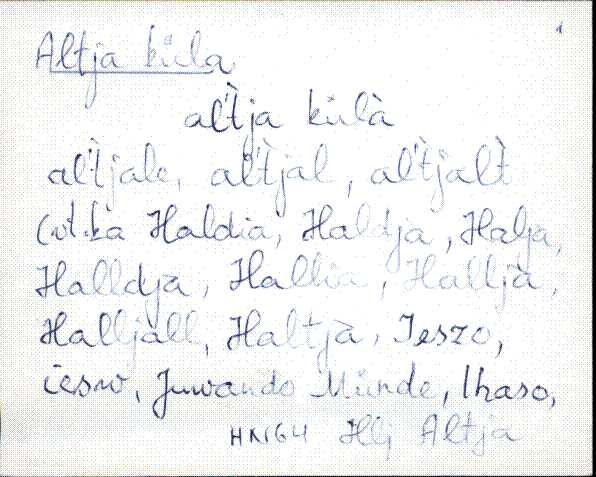 1
Altja küla
al't̀ja külà
al't̀jale, al't̀jal, al't̀jalt̀
(vt.ka Haldia, Haldja, Halja,
Halldja, Hallia, Hallja,
Halljall, Haltja, Jeszo,
Juwando Münde, Ihaso,
Hlj Altja